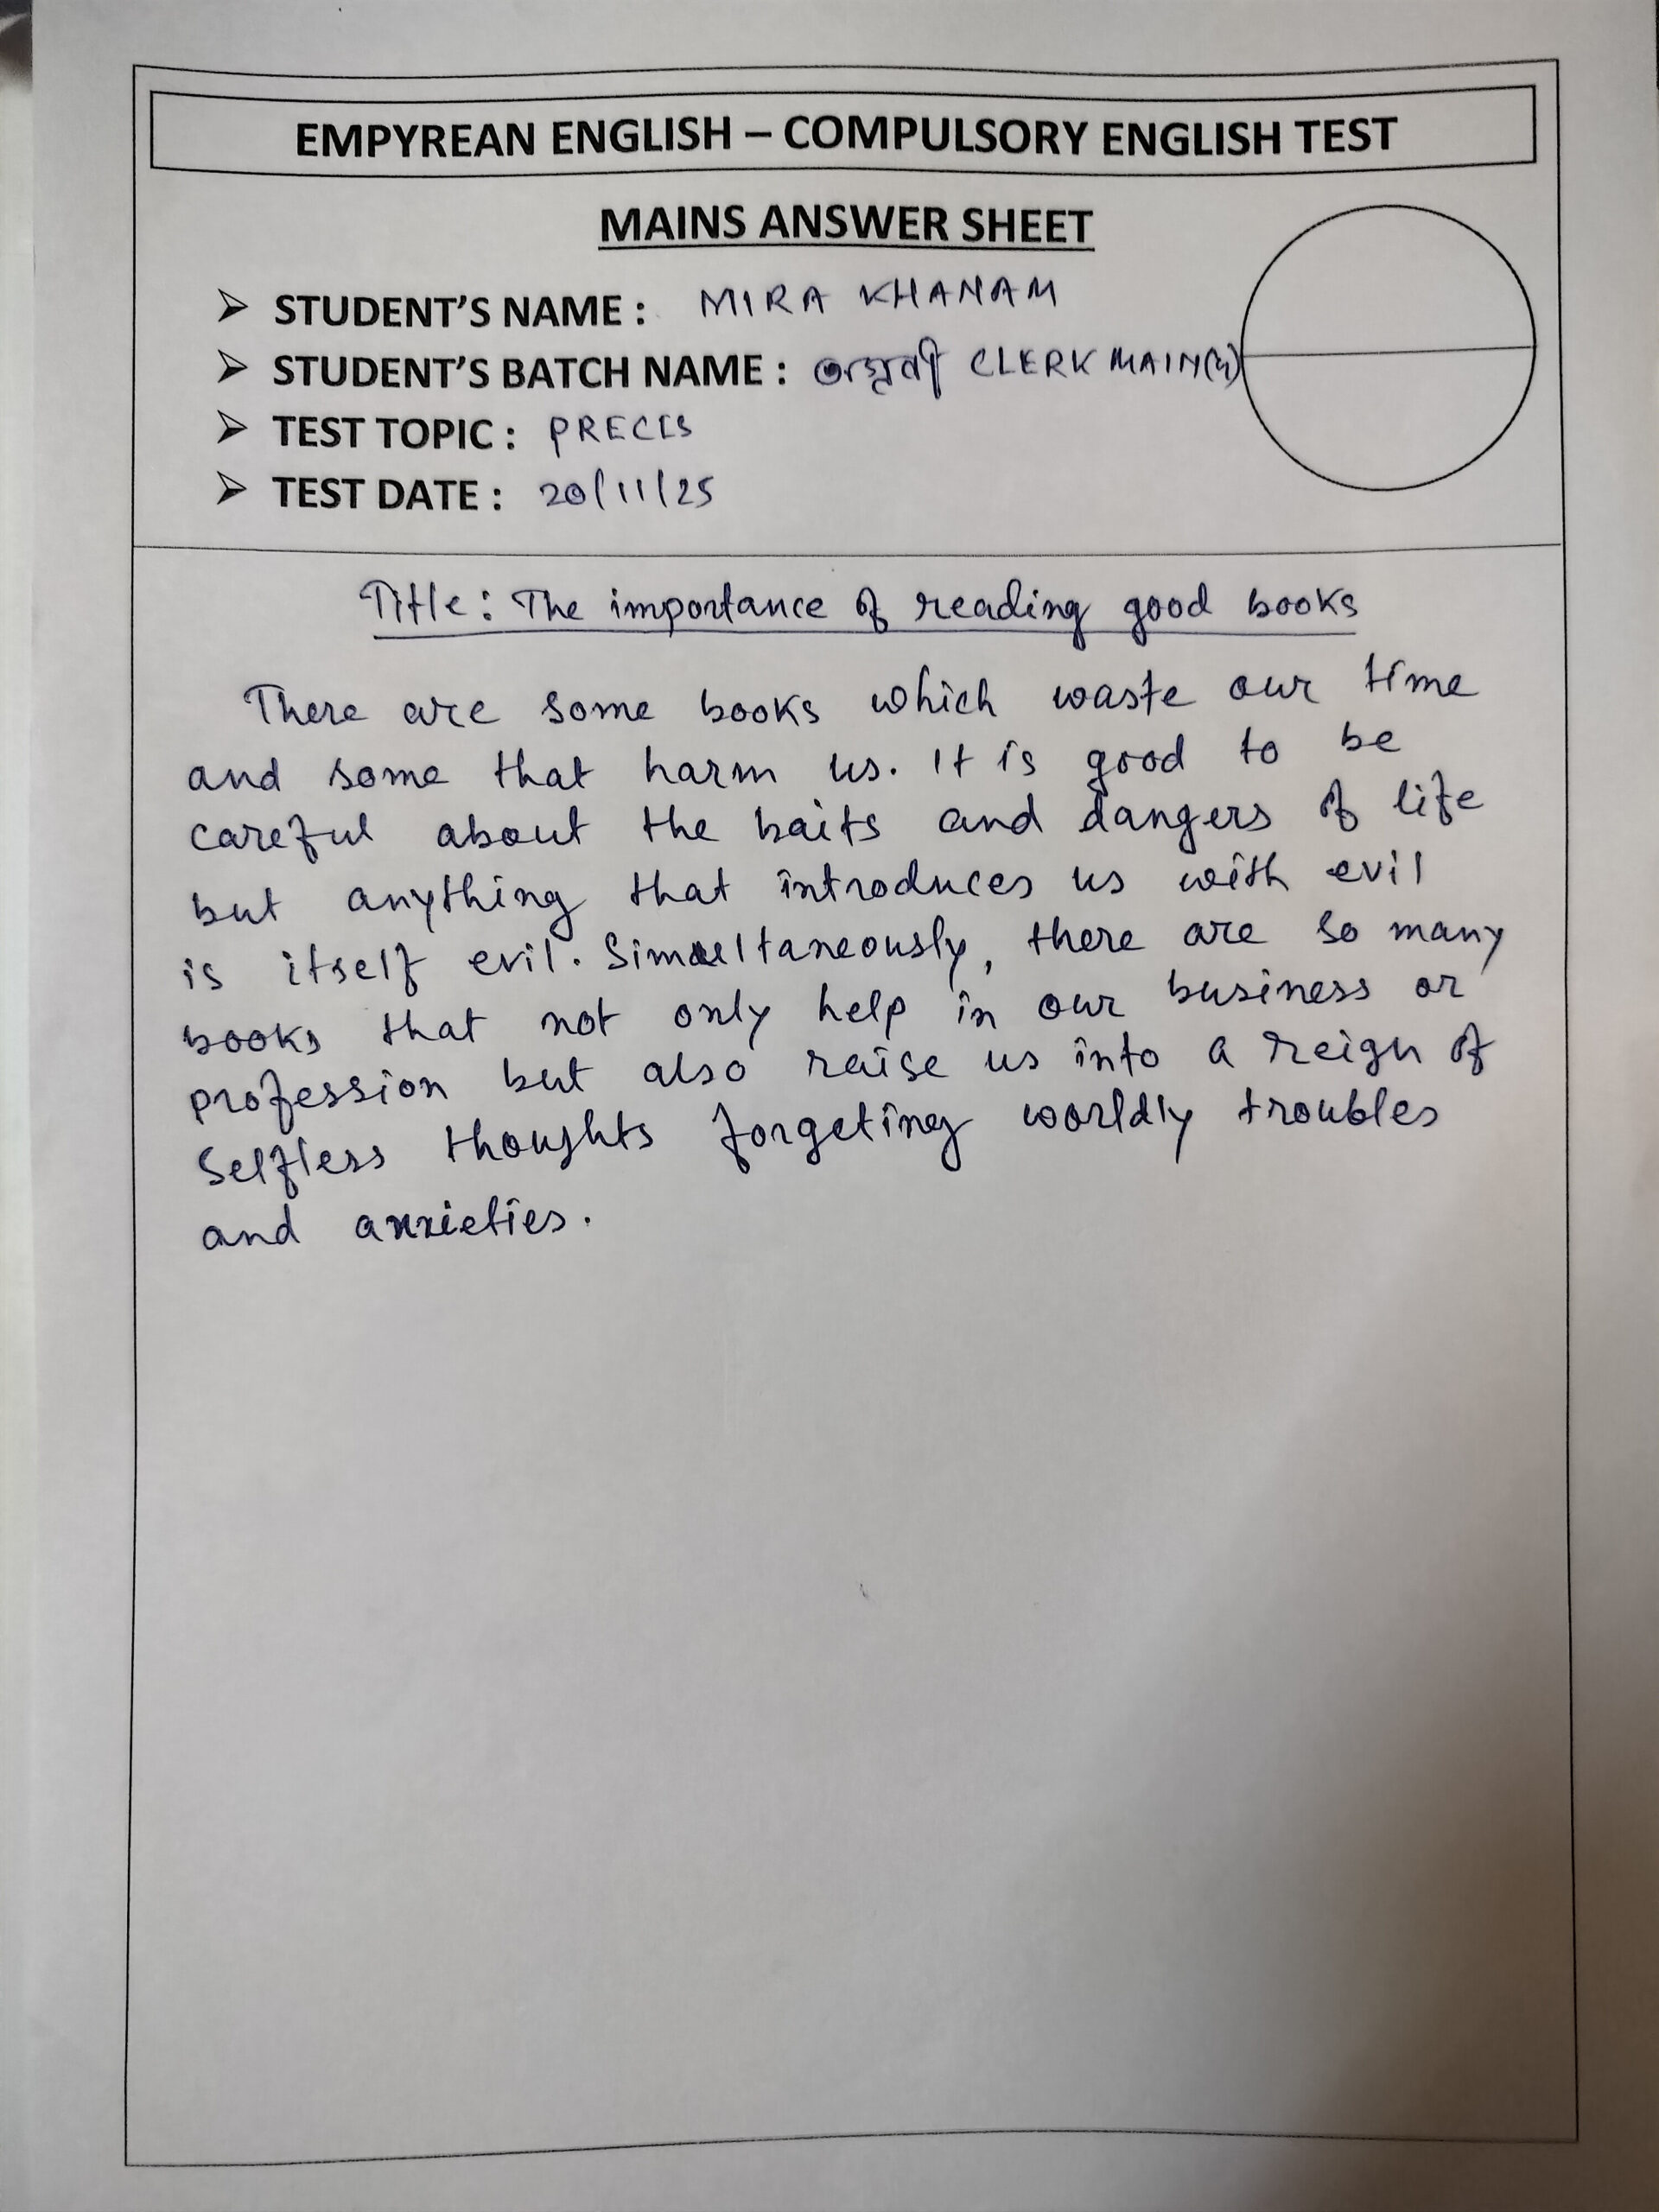 EMPYREAN ENGLISH – COMPULSORY ENGLISH TEST
MAINS ANSWER SHEET
➢ STUDENT'S NAME : MIRA KHANAM
➢ STUDENT'S BATCH NAME : CLERK MAIN
➢ TEST TOPIC : PRECIS
➢ TEST DATE : 20/11/25
Title: The importance of reading good books
There are some books which waste our time
and some that harm us. It is good to be
careful about the baits and dangers of life
but anything that introduces us with evil
is itself evil. Simultaneously, there are so many
books that not only help in our business or
profession but also raise us into a reign of
Selfless thoughts forgeting worldly troubles
and anxieties.